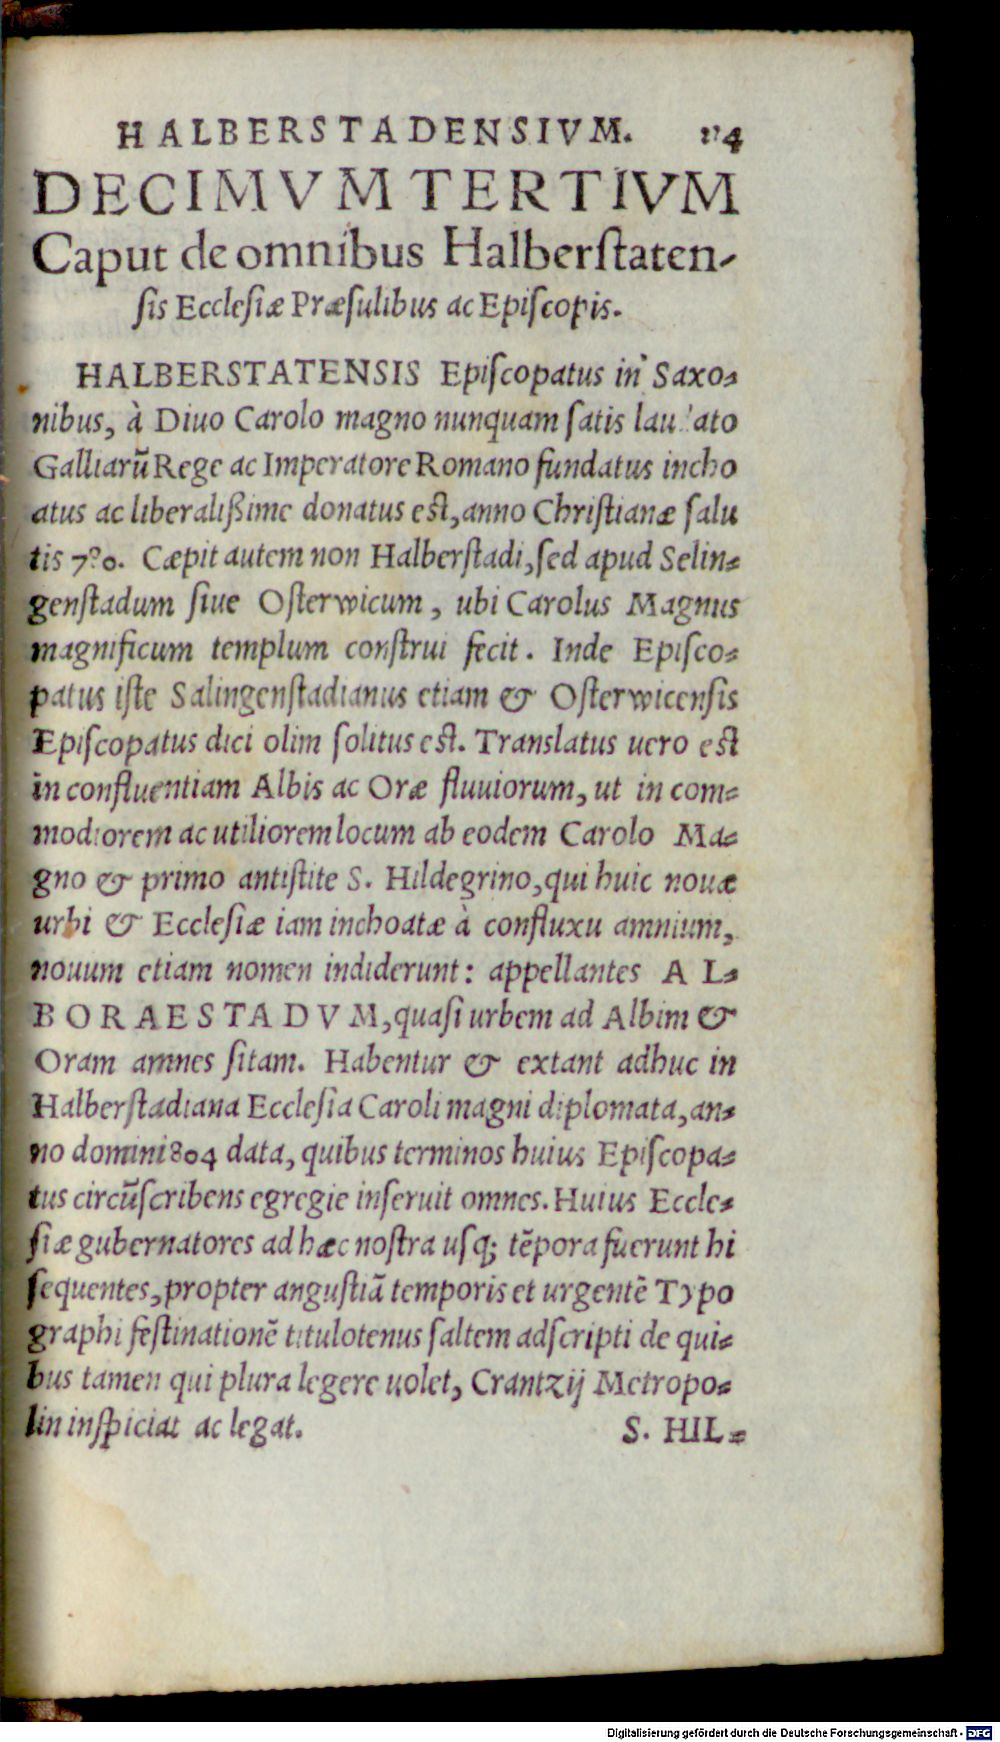 HALBERSTADENSIVM.
DECIMVM TERTIVM
Caput de omnibus Halberstaten-
sis Ecclesiæ Præsulibus ac Episcopis.
HALBERSTATENSIS Episcopatus in Saxo-
nibus, à Diuo Carolo magno nunquam satis laudato
Galliarũ Rege ac Imperatore Romano fundatus incho
atus ac liberalißime donatus est, anno Christianæ salu
tis Cæpit autem non Halberstadi, sed apud Selin-
genstadum siue Osterwicum, ubi Carolus Magnus
magnificum templum construi fecit. Inde Episco-
patus iste Salingenstadianus etiam & Osterwicensis
Episcopatus dici olim solitus est. Translatus uero est
in confluentiam Albis ac Oræ fluuiorum, ut in com-
modiorem ac utiliorem locum ab eodem Carolo Ma-
gno & primo antistite S. Hildegrino, qui huic nouæ
urbi & Ecclesiæ iam inchoatæ à confluxu amnium,
nouum etiam nomen indiderunt: appellantes AL-
BORAESTADVM, quasi urbem ad Albim &
Oram amnes sitam. Habentur & extant adhuc in
Halberstadiana Ecclesia Caroli magni diplomata, an-
no domini 804 data, quibus terminos huius Episcopa-
tus circũscribens egregie inseruit omnes. Huius Eccle-
siæ gubernatores ad hæc nostra usq; tẽpora fuerunt hi
sequentes, propter angustiã temporis et urgentẽ Typo
graphi festinationẽ titulotenus saltem adscripti de qui-
bus tamen qui plura legere uolet, Crantzij Metropo-
lin inspiciat ac legat.
S. HIL-
Digitalisierung gefördert durch die Deutsche Forschungsgemeinschaft - DFG